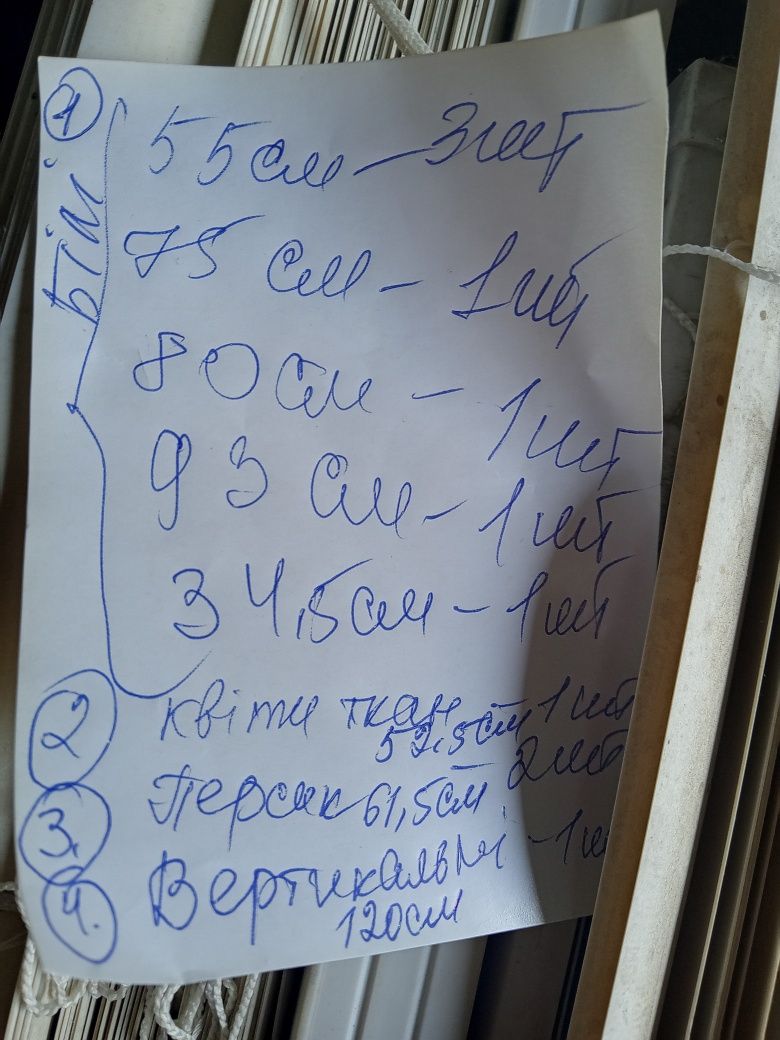 1
Білі
55см - 3шт
75 см - 1шт
80см - 1шт
93 см - 1шт
34,5см - 1шт
2 квіти ткан - 1шт
52,5см
3. Персик 61,5см - 2шт
4. Вертикальні - 1ш
120см